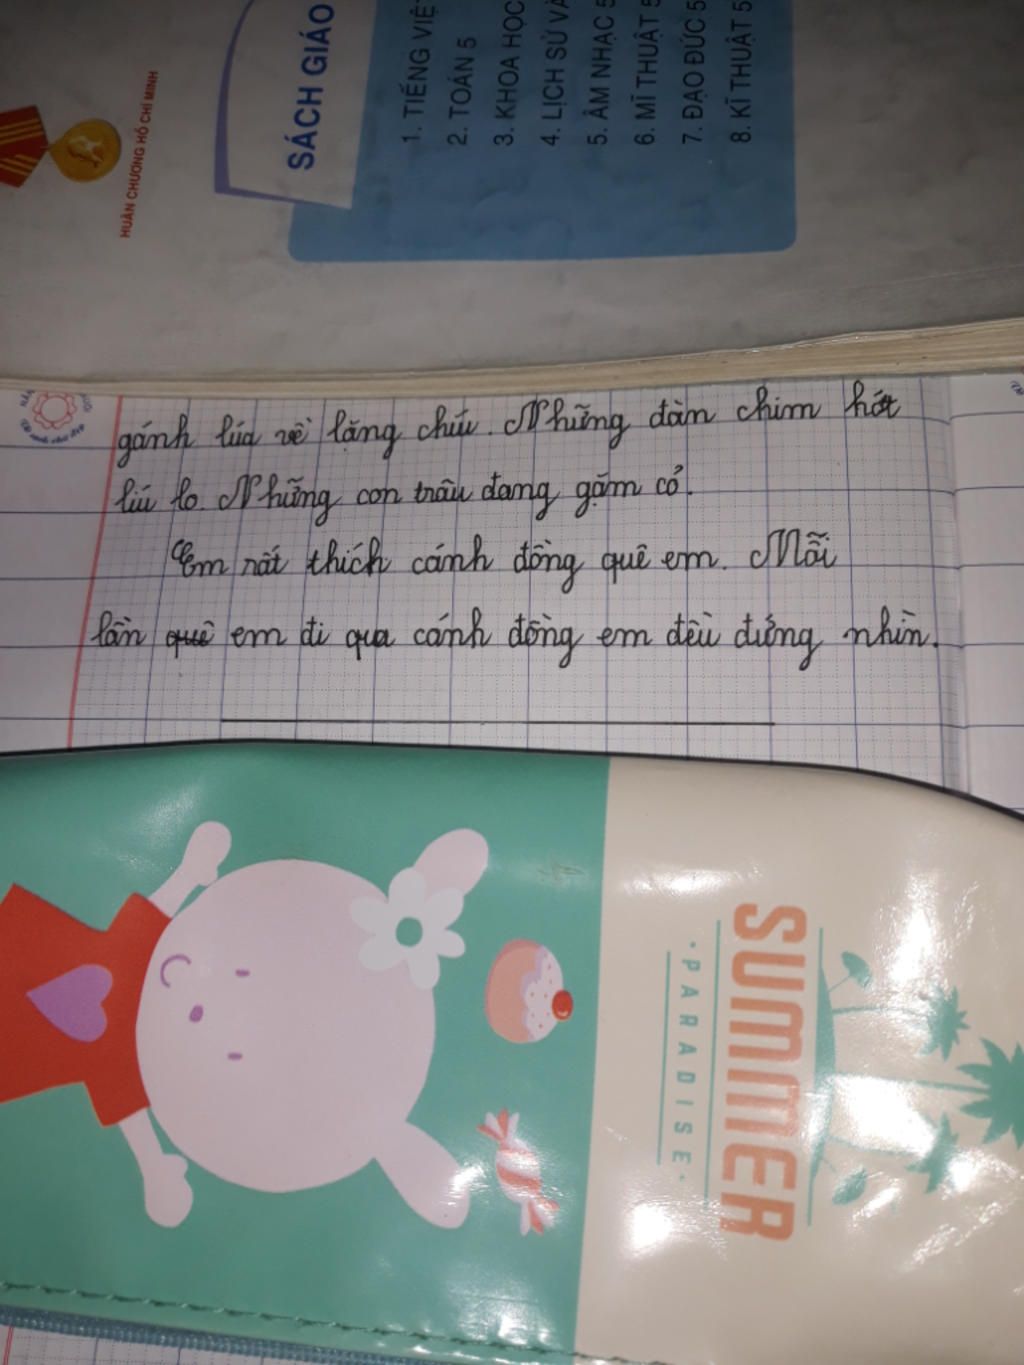 HUÂN CHƯƠNG HỒ CHÍ MINH
SÁCH GIÁO
1. TIẾNG VIỆT
2. TOÁN 5
3. KHOA HỌC
4. LỊCH SỬ VÀ
5. ÂM NHẠC 5
6. MĨ THUẬT 5
7. ĐẠO ĐỨC 5
8. KĨ THUẬT 5
gánh lúa về lăng chíu. Những đàn chim hót
líu lo. Những con trâu đang gặm cỏ.
Em rất thích cánh đồng quê em. Mỗi
lần quê em đi qua cánh đồng em đều đứng nhìn.
SUMMER
·PARADISE·